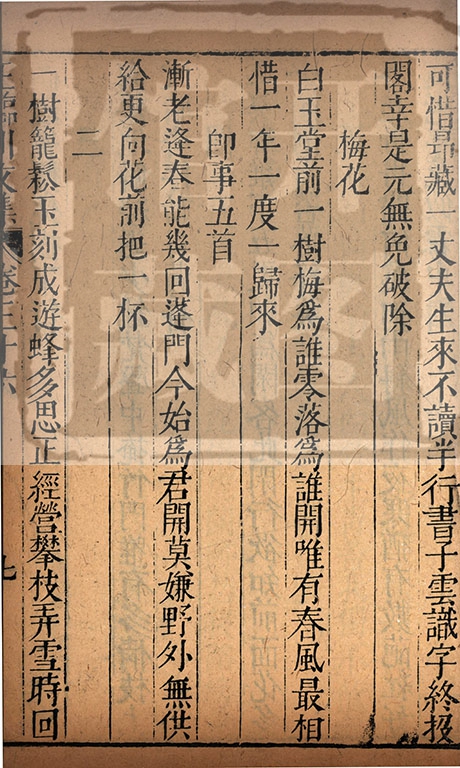 可惜昂藏一丈夫生來不讀半行書子雲識字終投
閣幸是元無免破除
梅花
白玉堂前一樹梅爲誰零落爲誰開唯有春風最相
惜一年一度一歸來
卽事五首
漸老逢春能幾回蓬門今始爲君開莫嫌野外無供
給更向花前把一杯
二
一樹籠鬆玉刻成遊蜂多思正經營攀枝弄雪時回
王臨川文集 卷三十六 九